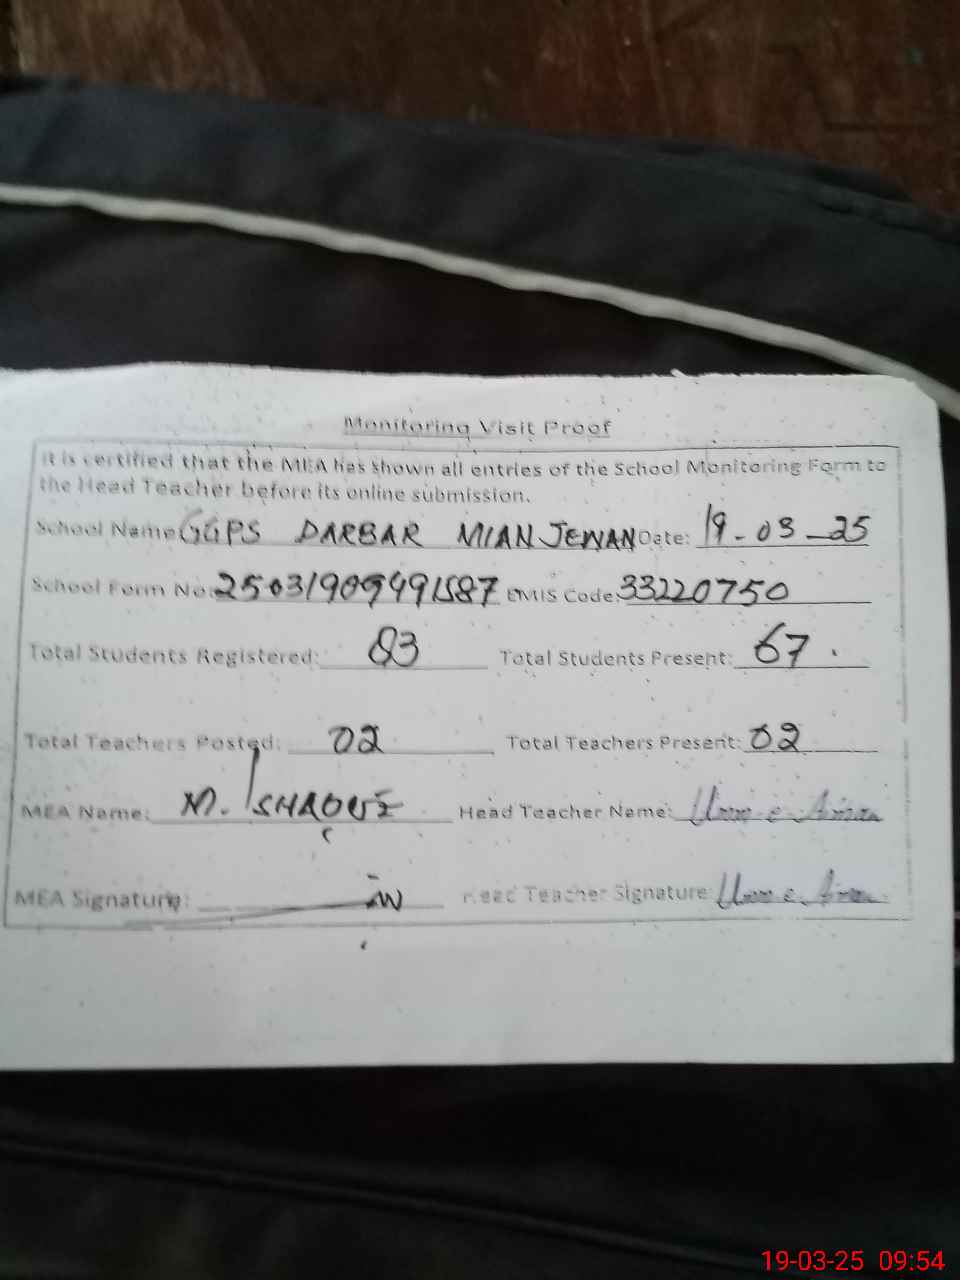 Monitoring Visit Proof
It is certified that the MEA has shown all entries of the School Monitoring Form to
the Head Teacher before its online submission.
School Name GGPS DARBAR MIAN JEWAN Date: 19-03-25
School Form No: 25031909491587 EMIS Code: 33220750
Total Students Registered: 83 Total Students Present: 67
Total Teachers Posted: 02 Total Teachers Present: 02
MEA Name: M. ISHAQUE Head Teacher Name: Umm e Aiman
MEA Signature: Head Teacher Signature: Umm e Aiman
19-03-25 09:54